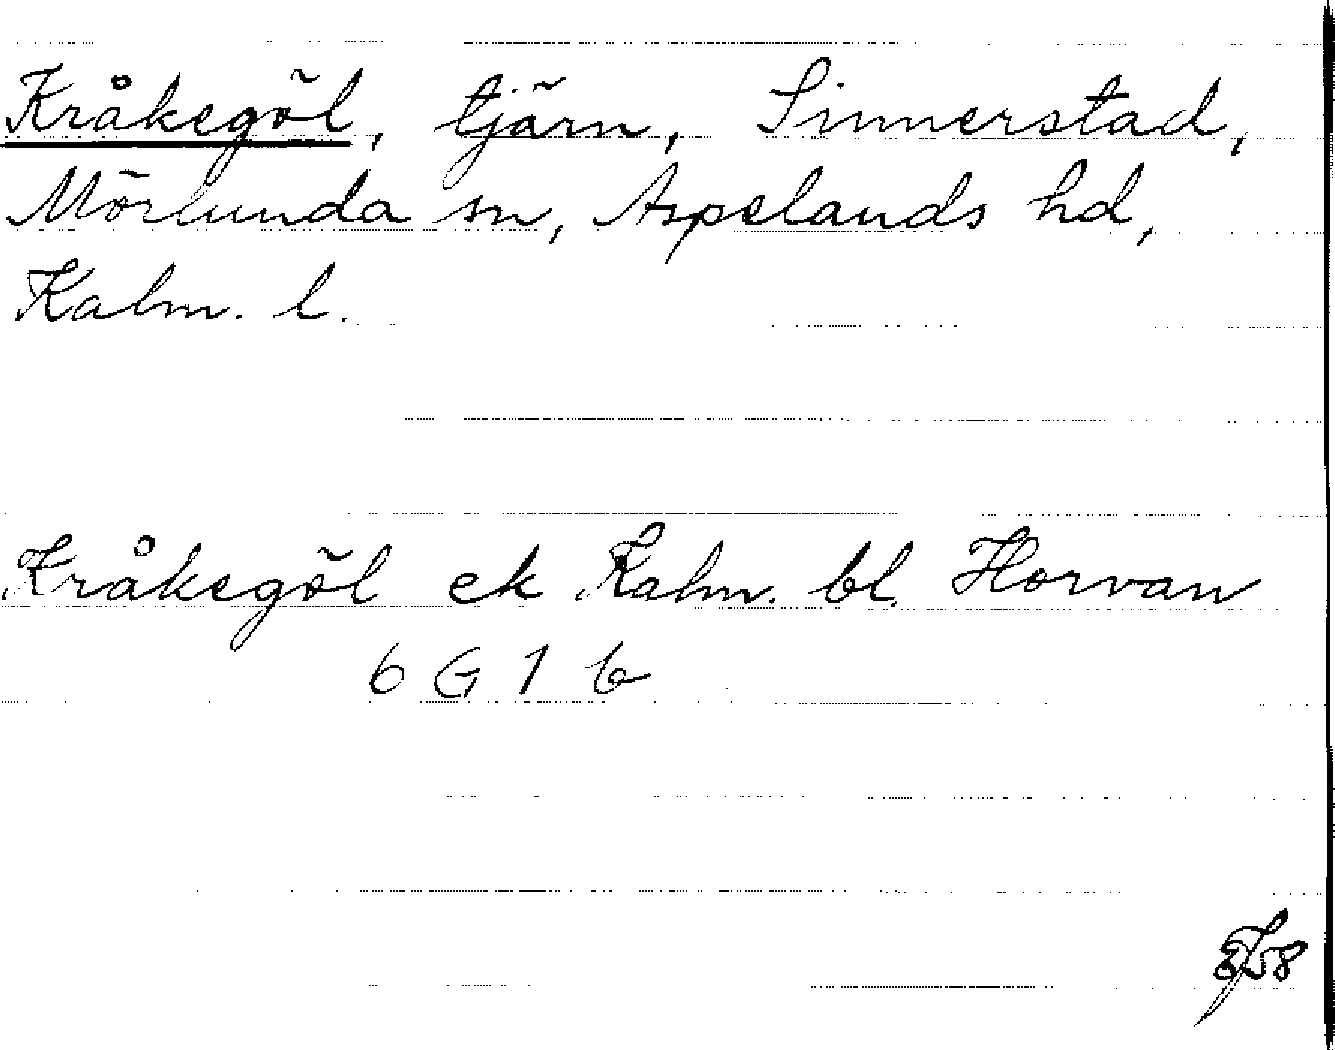 Kråkegöl, tjärn, Sinnerstad,
Mörlunda sn, Aspelands hd,
Kalm. l.
Kråkegöl ek Kalm. bl. Horvan
6 G 1 b